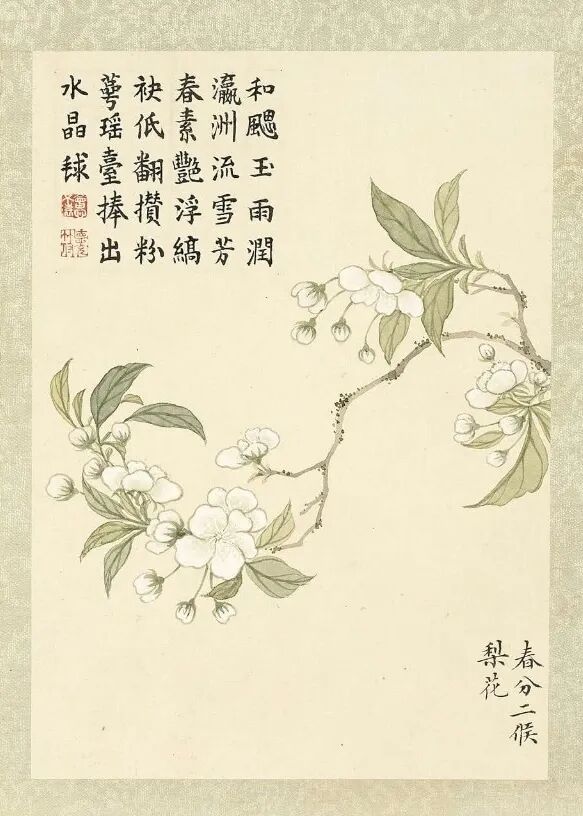 和颸玉雨潤
瀛洲流雪芳
春素豔浮縞
袂低翻攢粉
蕚瑶臺捧出
水晶毬
春分二候
梨花